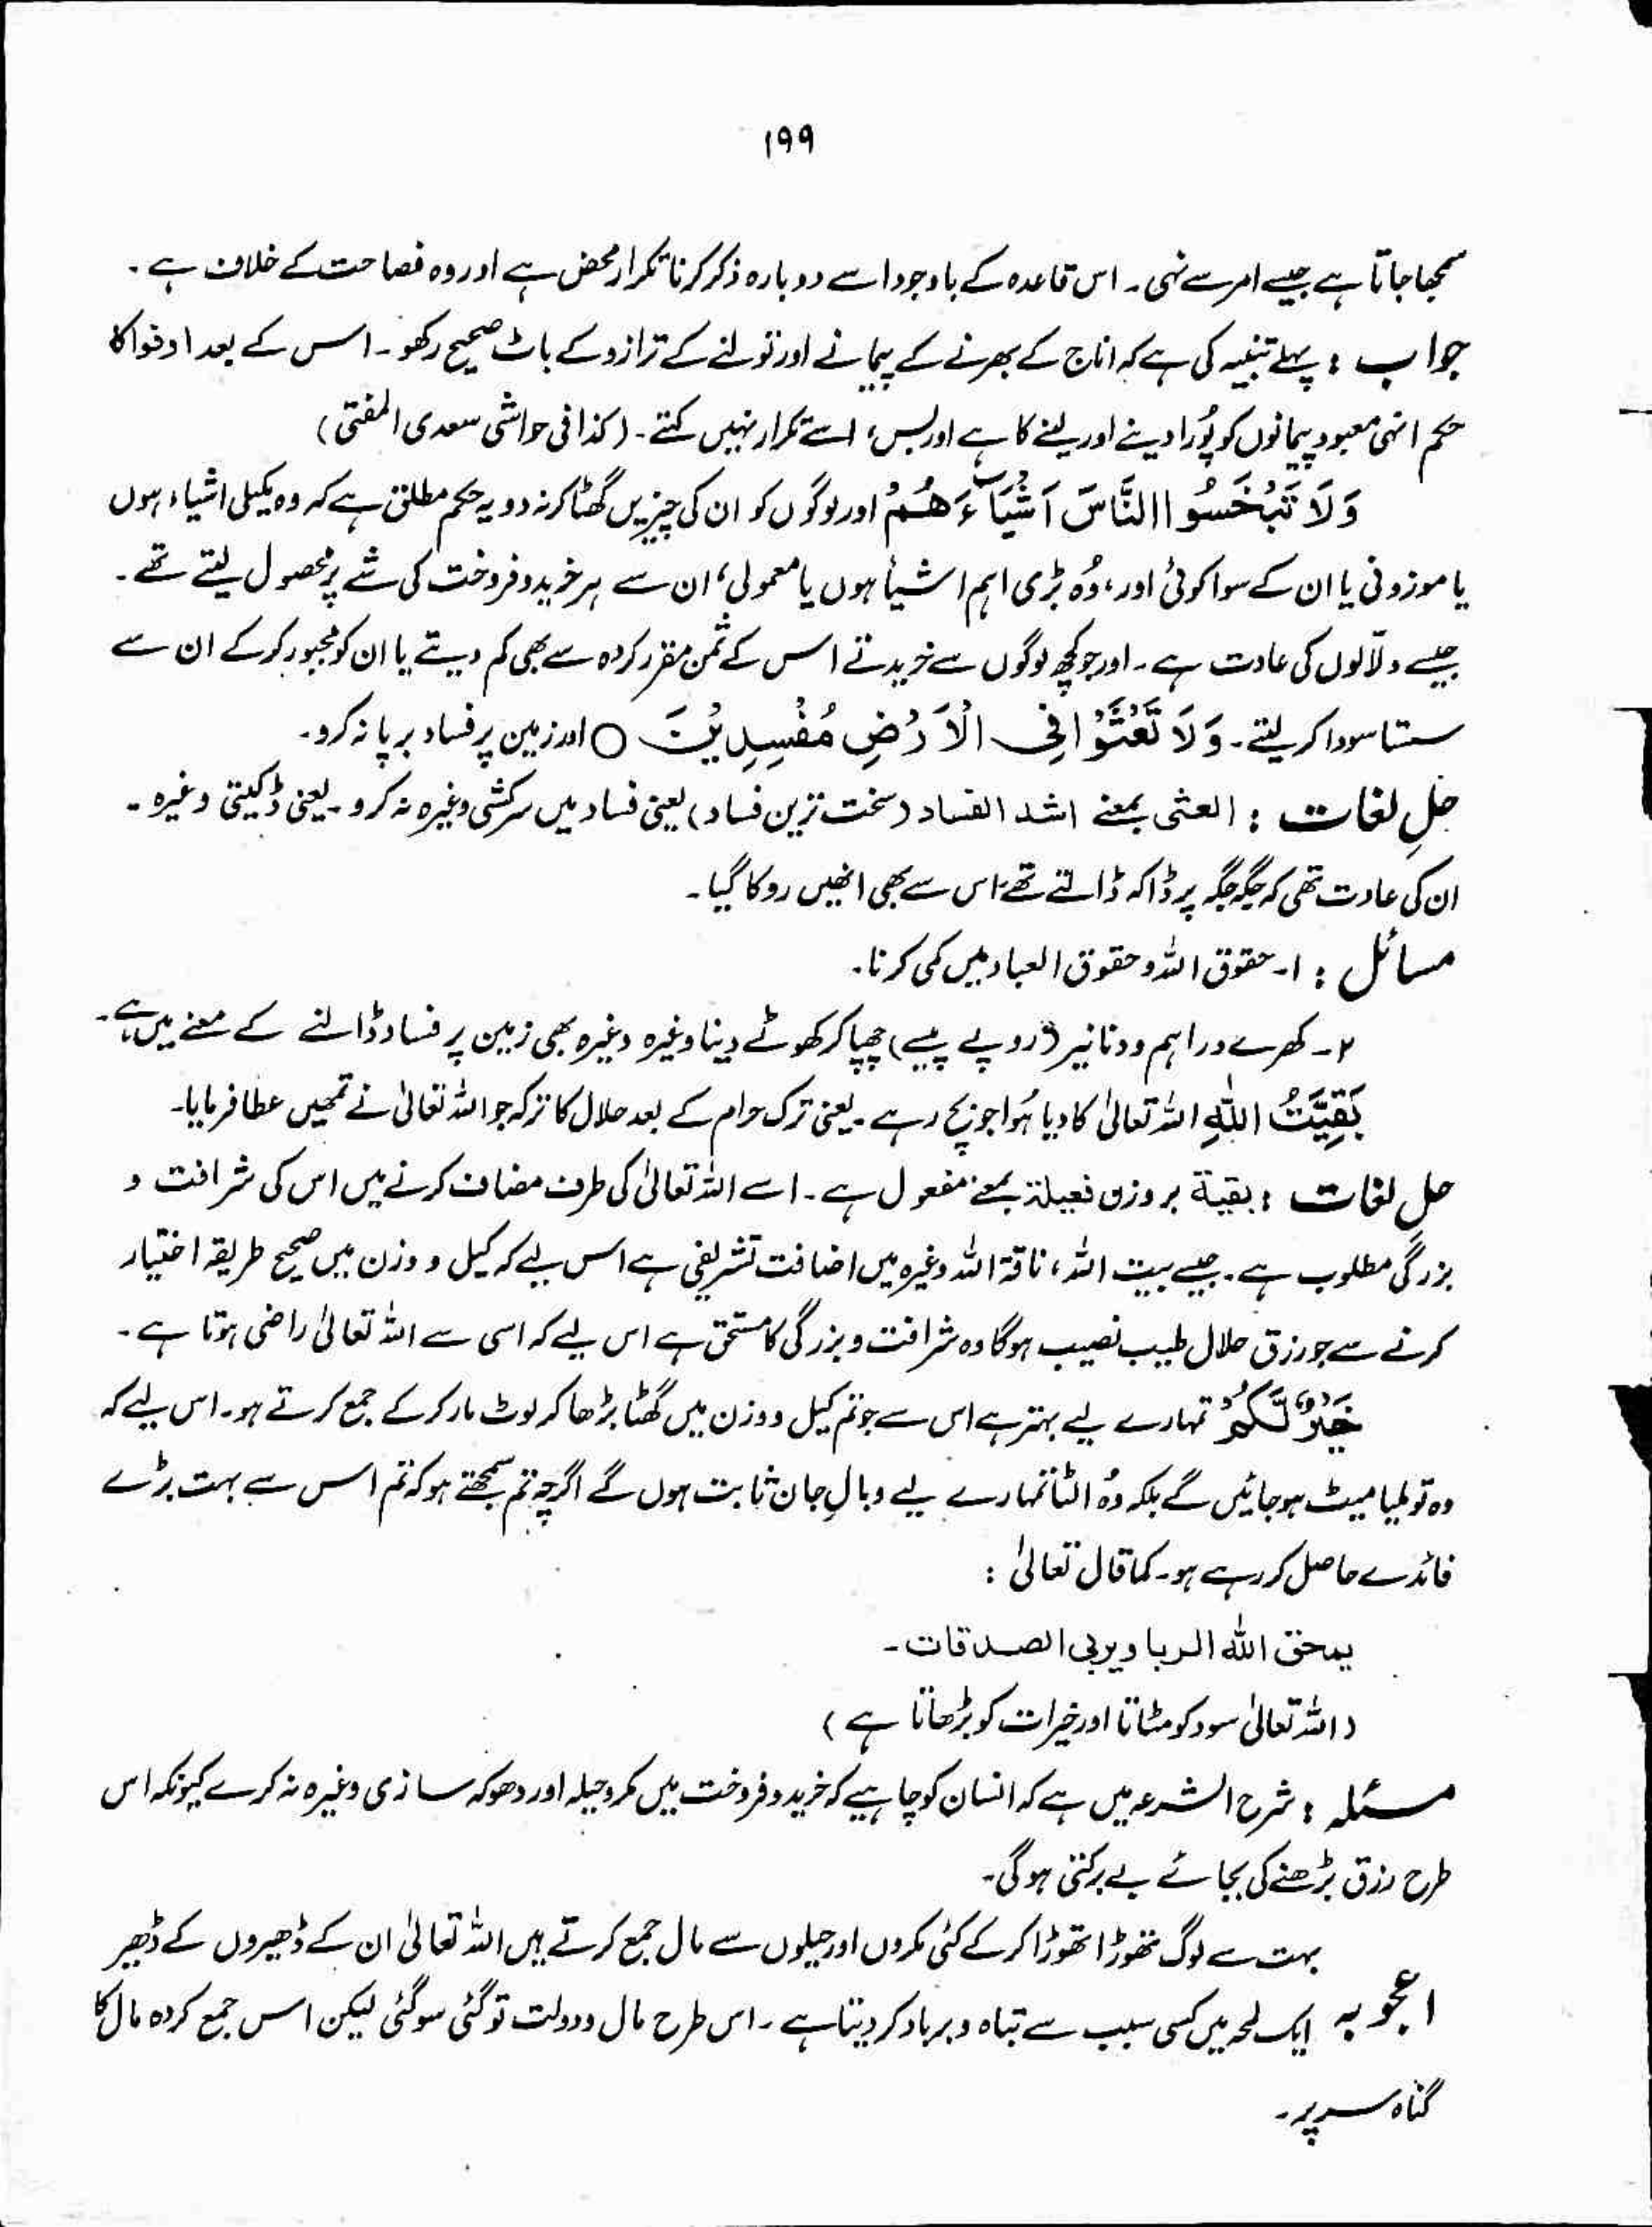 ۱۹۹
سمجھا جاتا ہے جیسے امر سے نہی۔ اس قاعدہ کے باوجود اسے دوبارہ ذکر کرنا تکرار محض ہے اور وہ فصاحت کے خلاف ہے۔
جواب : پہلے تنبیہ کی ہے کہ اناج کے بھرنے کے پیمانے اور تولنے کے ترازو کے باٹ صحیح رکھو۔ اس کے بعد اوفوا کا
حکم انہی معہود پیمانوں کو پُورا دینے اور لینے کا ہے اور بس، اسے تکرار نہیں کہتے۔ (کذا فی حواشی سعدی المفتی)
وَلَا تَبْخَسُوا النَّاسَ اَشْيَآءَهُمْ اور لوگوں کو ان کی چیزیں گھٹا کر نہ دو یہ حکم مطلق ہے کہ وہ مکیلی اشیاء ہوں
یا موزونی یا ان کے سوا کوئی اور، وُہ بڑی اہم اشیأ ہوں یا معمولی، ان سے ہر خرید و فروخت کی شے پر محصول لیتے تھے۔
جیسے دلّالوں کی عادت ہے۔ اور جو کچھ لوگوں سے خریدتے اس کے ثمن مقرر کردہ سے بھی کم دیتے یا ان کو مجبور کر کے ان سے
سستا سودا کر لیتے۔ وَلَا تَعْثَوْا فِى الْاَرْضِ مُفْسِدِيْنَ ○ اور زمین پر فساد برپا نہ کرو۔
حلِ لغات : العثی بمعنے اشد الفساد (سخت ترین فساد) یعنی فساد میں سرکشی وغیرہ نہ کرو۔ یعنی ڈکیتی وغیرہ۔
ان کی عادت تھی کہ جگہ جگہ پر ڈاکہ ڈالتے تھے، اس سے بھی انھیں روکا گیا۔
مسائل : ۱۔ حقوق اللہ و حقوق العباد میں کمی کرنا۔
۲۔ کھرے دراہم و دنانیر (روپے پیسے) چھپا کر کھوٹے دینا وغیرہ وغیرہ بھی زمین پر فساد ڈالنے کے معنے میں ہے۔
بَقِيَّتُ اللّٰهِ اللہ تعالیٰ کا دیا ہُوا جو بچ رہے۔ یعنی ترک حرام کے بعد حلال کا ترکہ جو اللہ تعالیٰ نے تمھیں عطا فرمایا۔
حل لغات : بقیۃ بر وزن فعیلۃ بمعنے مفعول ہے۔ اسے اللہ تعالیٰ کی طرف مضاف کرنے میں اس کی شرافت و
بزرگی مطلوب ہے۔ جیسے بیت اللہ، ناقۃ اللہ وغیرہ میں اضافت تشریفی ہے اس لیے کہ کیل و وزن میں صحیح طریقہ اختیار
کرنے سے جو رزق حلال طیب نصیب ہوگا وہ شرافت و بزرگی کا مستحق ہے اس لیے کہ اسی سے اللہ تعالیٰ راضی ہوتا ہے۔
خَيْرٌ لَّكُمْ تمہارے لیے بہتر ہے اس سے جو تم کیل و وزن میں گھٹا بڑھا کر لوٹ مار کر کے جمع کرتے ہو۔ اس لیے کہ
وہ تو ملیا میٹ ہو جائیں گے بلکہ وُہ الٹا تمہارے لیے وبالِ جان ثابت ہوں گے اگرچہ تم سمجھتے ہو کہ تم اس سے بہت بڑے
فائدے حاصل کر رہے ہو۔ کما قال تعالیٰ :
یمحق اللہ الربا ویربی الصدقات۔
(اللہ تعالیٰ سود کو مٹاتا اور خیرات کو بڑھاتا ہے)
مسئلہ : شرح الشرعہ میں ہے کہ انسان کو چاہیے کہ خرید و فروخت میں مکر و حیلہ اور دھوکہ سازی وغیرہ نہ کرے کیونکہ اس
طرح رزق بڑھنے کی بجائے بے برکتی ہوگی۔
بہت سے لوگ تھوڑا تھوڑا کر کے کئی مکروں اور حیلوں سے مال جمع کرتے ہیں اللہ تعالیٰ ان کے ڈھیروں کے ڈھیر
اعجوبہ ایک لمحہ میں کسی سبب سے تباہ و برباد کر دیتا ہے۔ اس طرح مال و دولت تو گئی سو گئی لیکن اس جمع کردہ مال کا
گناہ سر پر۔